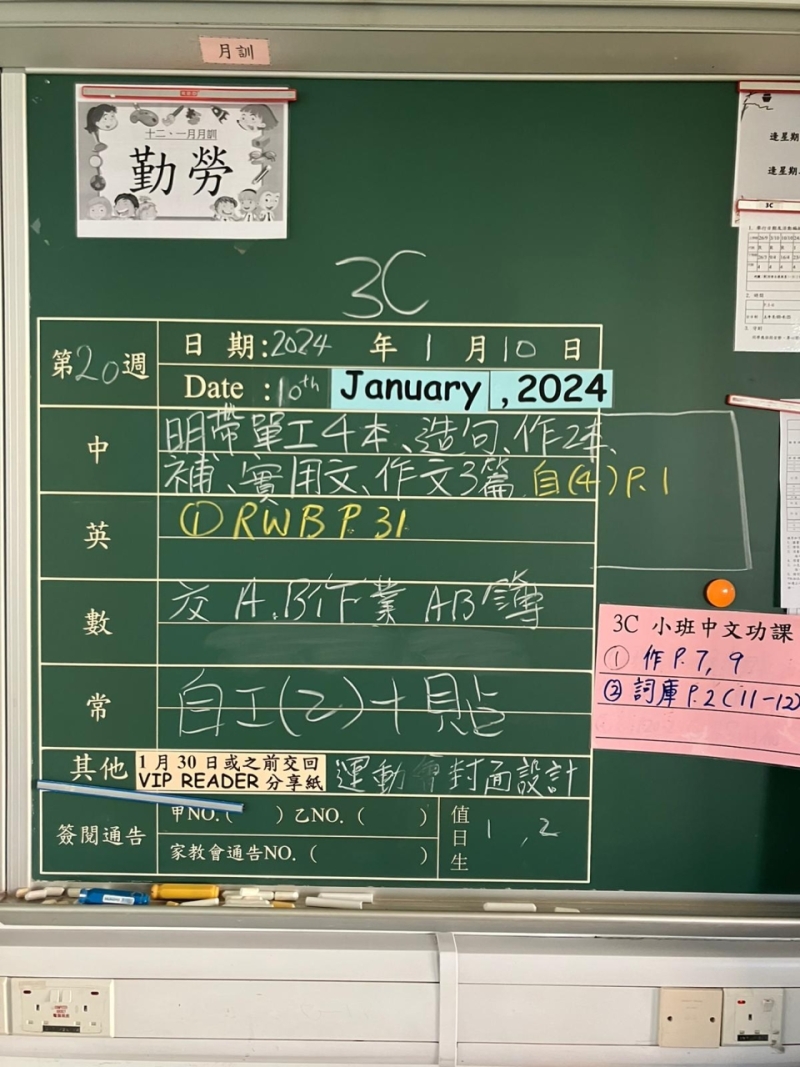 月訓
十二、一月月訓
勤勞
逢星期
逢星期
3C
3C
第20週
日期:2024年1月10日
Date :10th January ,2024
中
明帶單工4本、造句、作2本、
補、實用文、作文3篇 自(4)P.1
英
①RWB P.31
數
交 A.B作業 AB簿
常
自工(2)+貼
其他
1月30日或之前交回
VIP READER 分享紙
運動會封面設計
簽閱通告
甲NO.( ) 乙NO.( )
家教會通告NO.( )
值日生
1,2
3C 小班中文功課
① 作P.7, 9
② 詞庫 P.2(11-12)